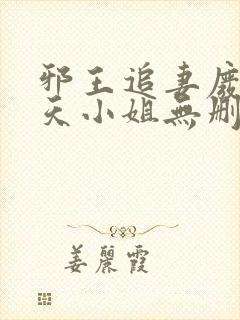 邪王追妻廢
天小姐無刪
姜麗霞